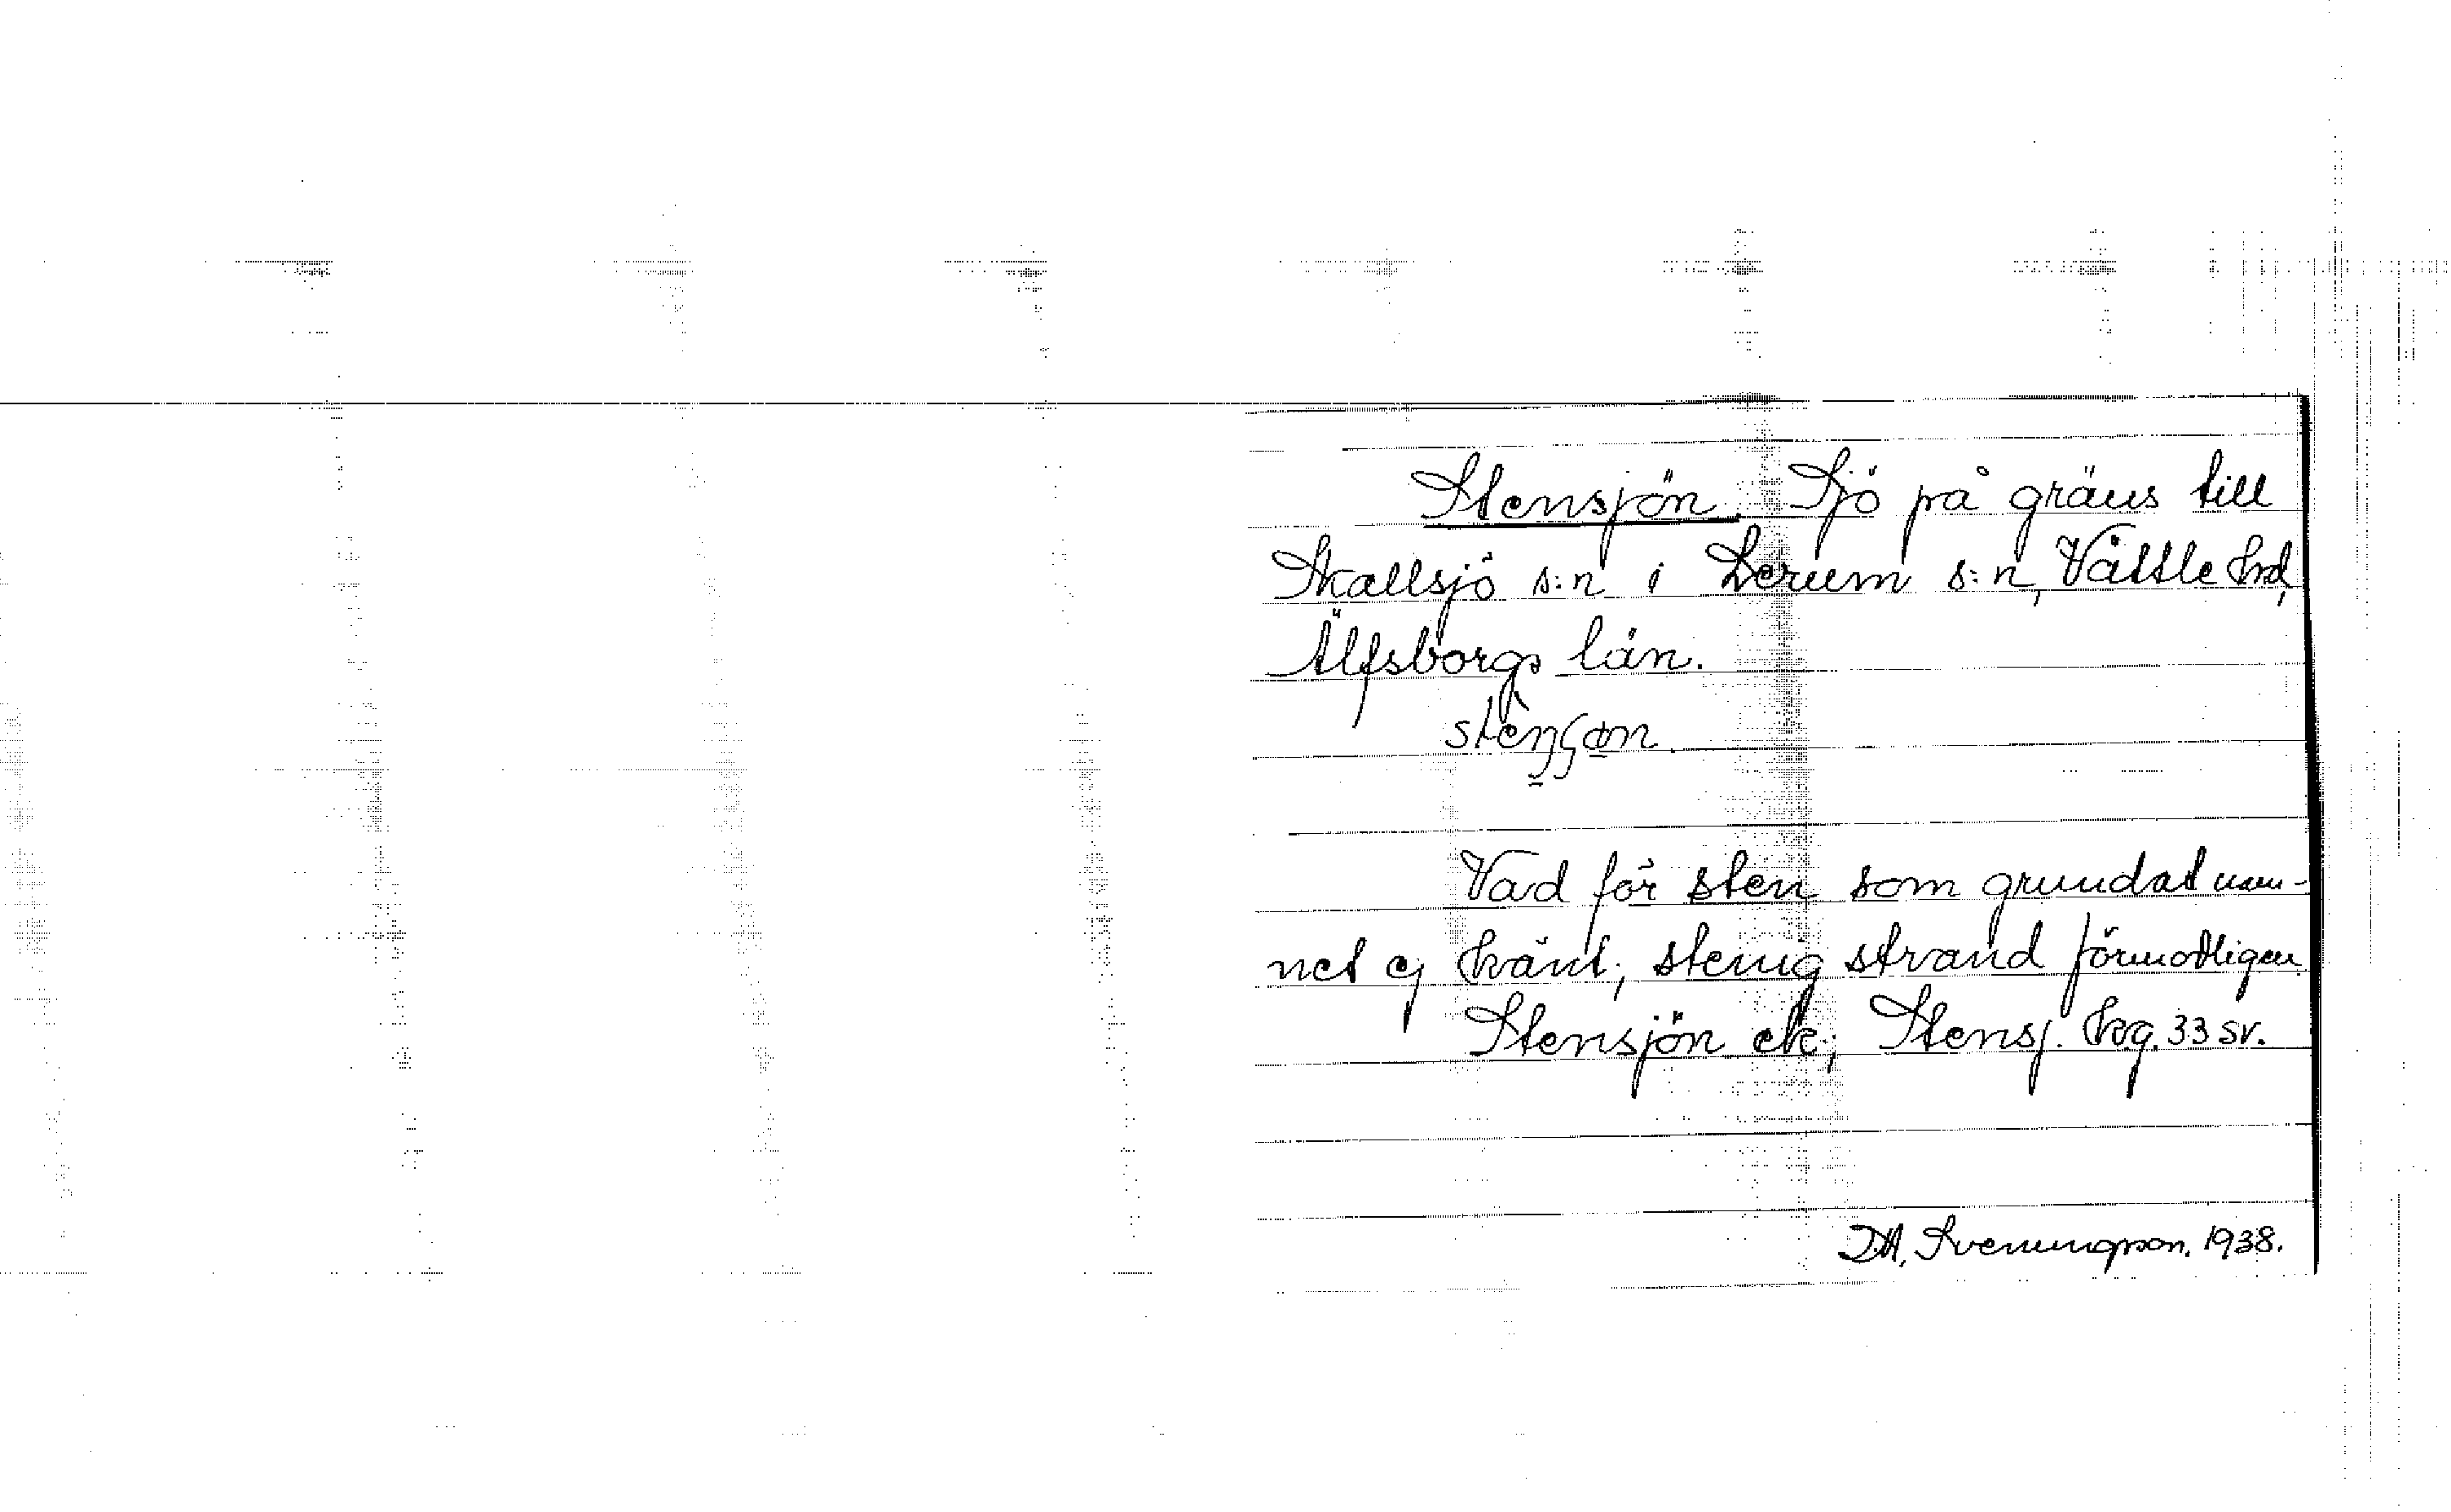 Stensjön. Sjö på gräns till
Skallsjö s:n i Lerum s:n, Vättle hrd,
Älfsborgs län.
Vad för sten som grundat nam-
net ej känt; stenig strand förmodligen
Stensjön ek; Stensj. kg. 33 sv.
D.A. Sveningson. 1938.